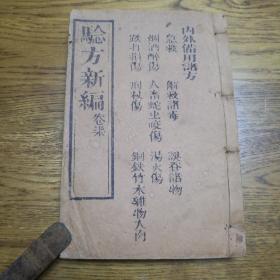 内外備用諸方
急救 解救諸毒 誤吞諸物
烟酒醉傷 人畜蛇虫咬傷 湯火傷
跌打損傷 刑杖傷 銅鉄竹木雜物入肉
騐方新編 卷柒